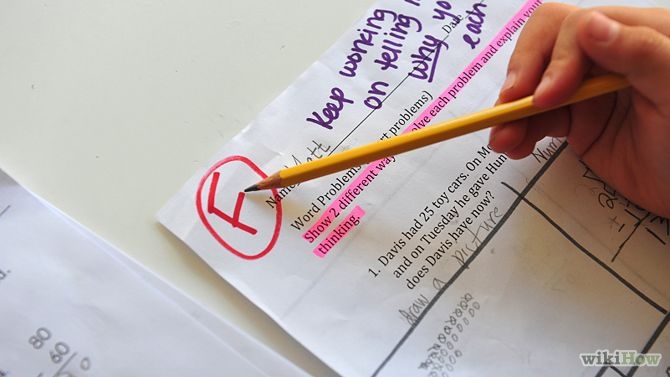 Keep working
on telling
why yo
each
Date
F
Name Matt
Word Problems rt problems)
Show 2 different way lve each problem and explain your
thinking.
1. Davis had 25 toy cars. On M
and on Tuesday he gave Hun
does Davis have now?
draw a picture
Num
80
60
0
wikiHow